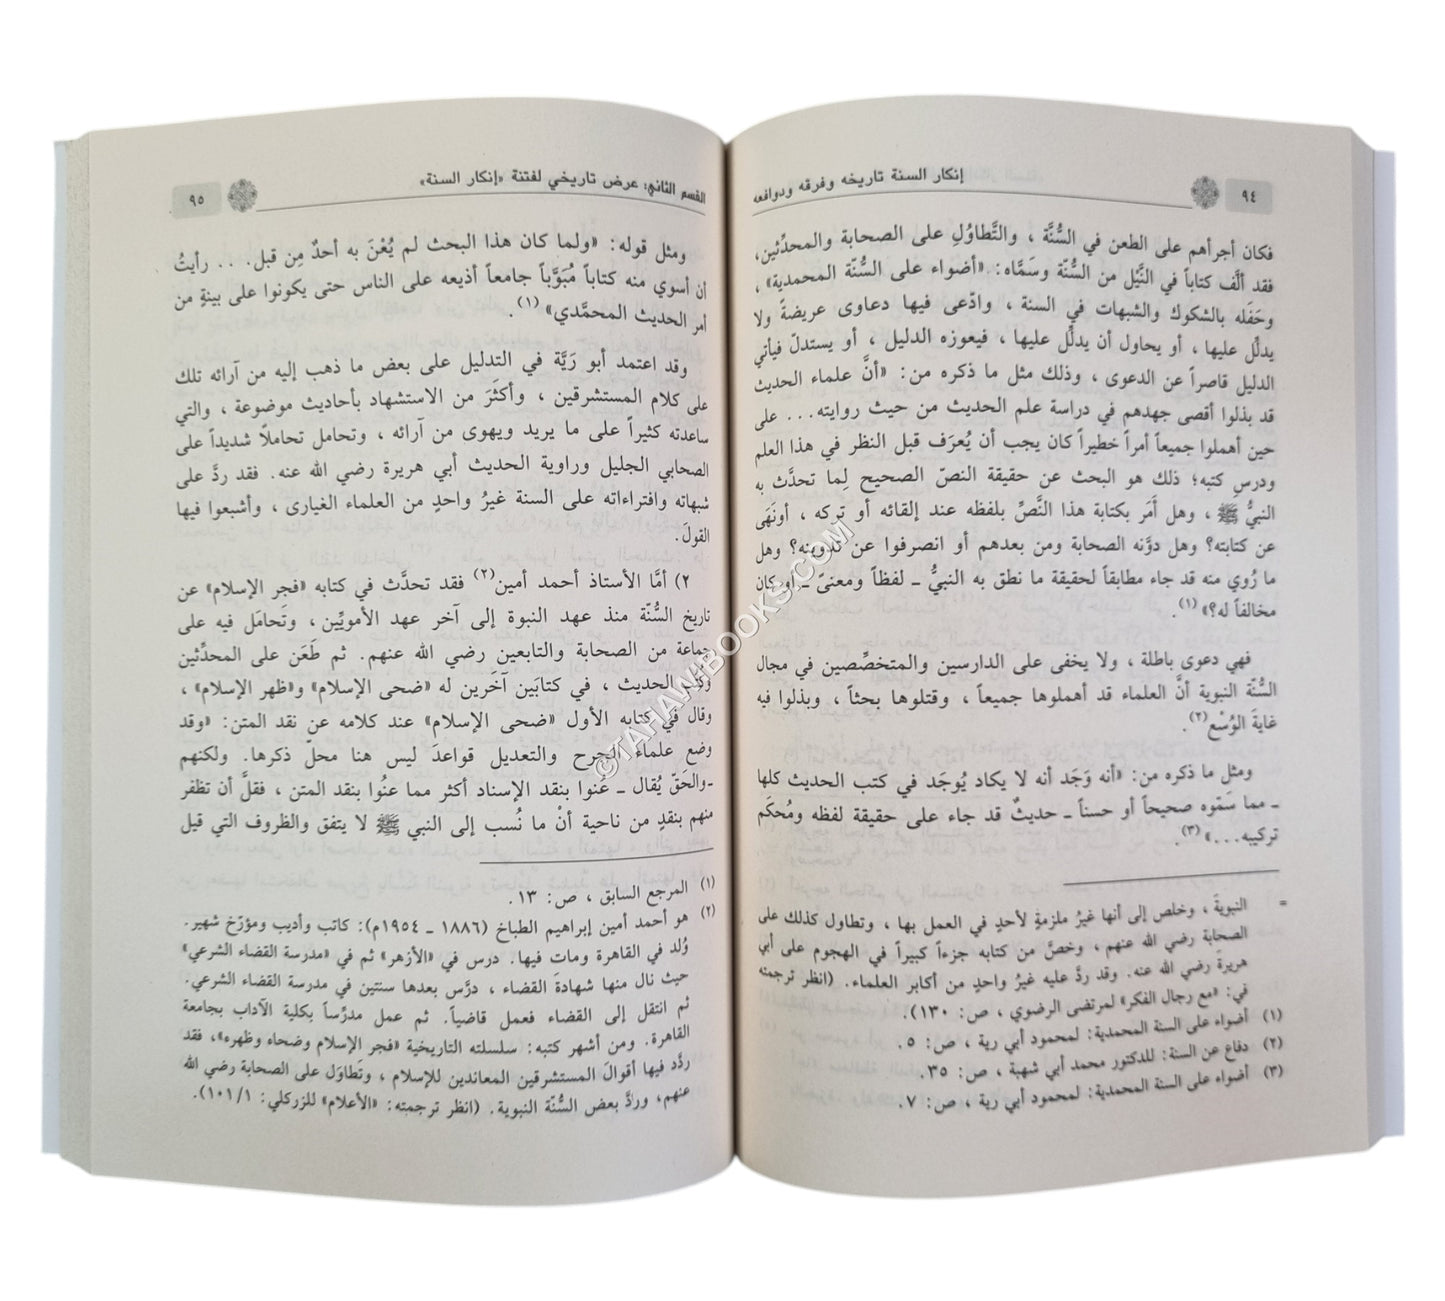 ٩٤
إنكار السنة تاريخه وفرقه ودوافعه
فكان أجرأهم على الطعن في السُّنَّة ، والتَّطاوُلِ على الصحابة والمحدِّثين،
فقد ألَّف كتاباً في النَّيْل من السُّنّة وسَمَّاه: «أضواء على السُّنّة المحمدية» ،
وحَفَله بالشكوك والشبهات في السنة ، وادّعى فيها دعاوى عريضةً ولا
يدلِّل عليها ، أو يحاول أن يدلِّل عليها ، فيعوزه الدليل ، أو يستدلّ فيأتي
الدليل قاصراً عن الدعوى ، وذلك مثل ما ذكره من: «أنَّ علماء الحديث
قد بذلوا أقصى جهدهم في دراسة علم الحديث من حيث روايته... على
حين أهملوا جميعاً أمراً خطيراً كان يجب أن يُعرَف قبل النظر في هذا العلم
ودرسِ كتبه؛ ذلك هو البحث عن حقيقة النصّ الصحيح لِما تحدَّث به
النبيُّ ﷺ ، وهل أَمَر بكتابة هذا النَّصِّ بلفظه عند إلقائه أو تركه ، أونَهَى
عن كتابته؟ وهل دوَّنه الصحابة ومن بعدهم أو انصرفوا عن تدوينه؟ وهل
ما رُوي منه قد جاء مطابقاً لحقيقة ما نطق به النبيُّ ـ لفظاً ومعنىً ـ أو كان
مخالفاً له؟» (١).
فهي دعوى باطلة ، ولا يخفى على الدارسين والمتخصِّصين في مجال
السُّنّة النبوية أنَّ العلماء قد أهملوها جميعاً ، وقتلوها بحثاً ، وبذلوا فيه
غايةَ الوُسْع(٢).
ومثل ما ذكره من: «أنه وَجَد أنه لا يكاد يُوجَد في كتب الحديث كلها
ـ مما سَمّوه صحيحاً أو حسناً ـ حديثٌ قد جاء على حقيقة لفظه ومُحكَم
تركيبه...» (٣).
= النبوية ، وخلص إلى أنها غيرُ ملزمةٍ لأحدٍ في العمل بها ، وتطاول كذلك على
الصحابة رضي الله عنهم ، وخصَّ من كتابه جزءاً كبيراً في الهجوم على أبي
هريرة رضي الله عنه. وقد ردَّ عليه غيرُ واحدٍ من أكابر العلماء. (انظر ترجمته
في: «مع رجال الفكر» لمرتضى الرضوي ، ص: ١٣٠).
(١) أضواء على السنة المحمدية: لمحمود أبي رية ، ص: ٥.
(٢) دفاع عن السنة: للدكتور محمد أبي شهبة ، ص: ٣٥.
(٣) أضواء على السنة المحمدية: لمحمود أبي رية ، ص: ٧.
القسم الثاني: عرض تاريخي لفتنة «إنكار السنة»
٩٥
ومثل قوله: «ولما كان هذا البحث لم يُعْنَ به أحدٌ مِن قبل. .. رأيتُ
أن أسوي منه كتاباً مُبَوَّباً جامعاً أذيعه على الناس حتى يكونوا على بينةٍ من
أمر الحديث المحمَّدي» (١).
وقد اعتمد أبو رَيَّة في التدليل على بعض ما ذهب إليه من آرائه تلك
على كلام المستشرقين ، وأكثَرَ من الاستشهاد بأحاديث موضوعة ، والتي
ساعدته كثيراً على ما يريد ويهوى من آرائه ، وتحامل تحاملاً شديداً على
الصحابي الجليل وراوية الحديث أبي هريرة رضي الله عنه. فقد ردَّ على
شبهاته وافتراءاته على السنة غيرُ واحدٍ من العلماء الغيارى ، وأشبعوا فيها
القولَ.
٢) أمَّا الأستاذ أحمد أمين(٢) فقد تحدَّث في كتابه «فجر الإسلام» عن
تاريخ السُّنّة منذ عهد النبوة إلى آخر عهد الأمويِّين ، وتَحامَل فيه على
جماعة من الصحابة والتابعين رضي الله عنهم. ثم طَعَن على المحدِّثين
وكتب الحديث ، في كتابَين آخَرين له «ضحى الإسلام» و«ظهر الإسلام» ،
وقال في كتابه الأول «ضحى الإسلام» عند كلامه عن نقد المتن: «وقد
وضع علماء الجرح والتعديل قواعدَ ليس هنا محلّ ذكرها. ولكنهم
ـ والحَقّ يُقال ـ عُنوا بنقد الإسناد أكثر مما عنُوا بنقد المتن ، فقلَّ أن تظفر
منهم بنقدٍ من ناحية أنْ ما نُسب إلى النبي ﷺ لا يتفق والظروف التي قيل
(١) المرجع السابق ، ص: ١٣.
(٢) هو أحمد أمين إبراهيم الطباخ (١٨٨٦ ـ ١٩٥٤م): كاتب وأديب ومؤرّخ شهير.
وُلد في القاهرة ومات فيها. درس في «الأزهر» ثم في «مدرسة القضاء الشرعي»
حيث نال منها شهادةَ القضاء ، درَّس بعدها سنتين في مدرسة القضاء الشرعي.
ثم انتقل إلى القضاء فعمل قاضياً. ثم عمل مدرِّساً بكلية الآداب بجامعة
القاهرة. ومن أشهر كتبه: سلسلته التاريخية «فجر الإسلام وضحاه وظهره» ، فقد
ردَّد فيها أقوالَ المستشرقين المعاندين للإسلام ، وتَطاوَل على الصحابة رضي الله
عنهم، وردَّ بعض السُّنّة النبوية. (انظر ترجمته: «الأعلام» للزركلي: ١/١٠١).
©TAHAWIBOOKS.COM